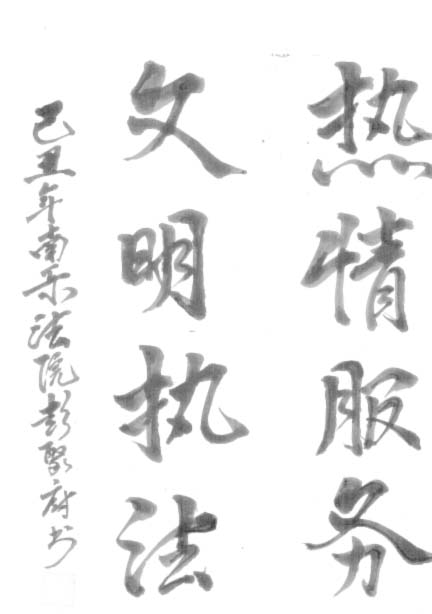 热情服务
文明执法
己丑年南乐法院彭聚府书